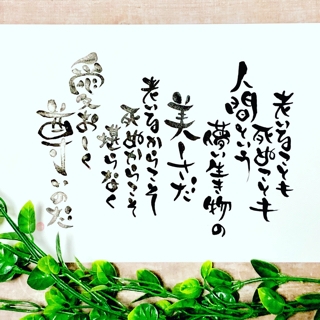 老いることも
死ぬことも
人間という
儚い生き物の
美しさだ
老いるからこそ
死ぬからこそ
堪らなく
愛おしく
尊いのだ